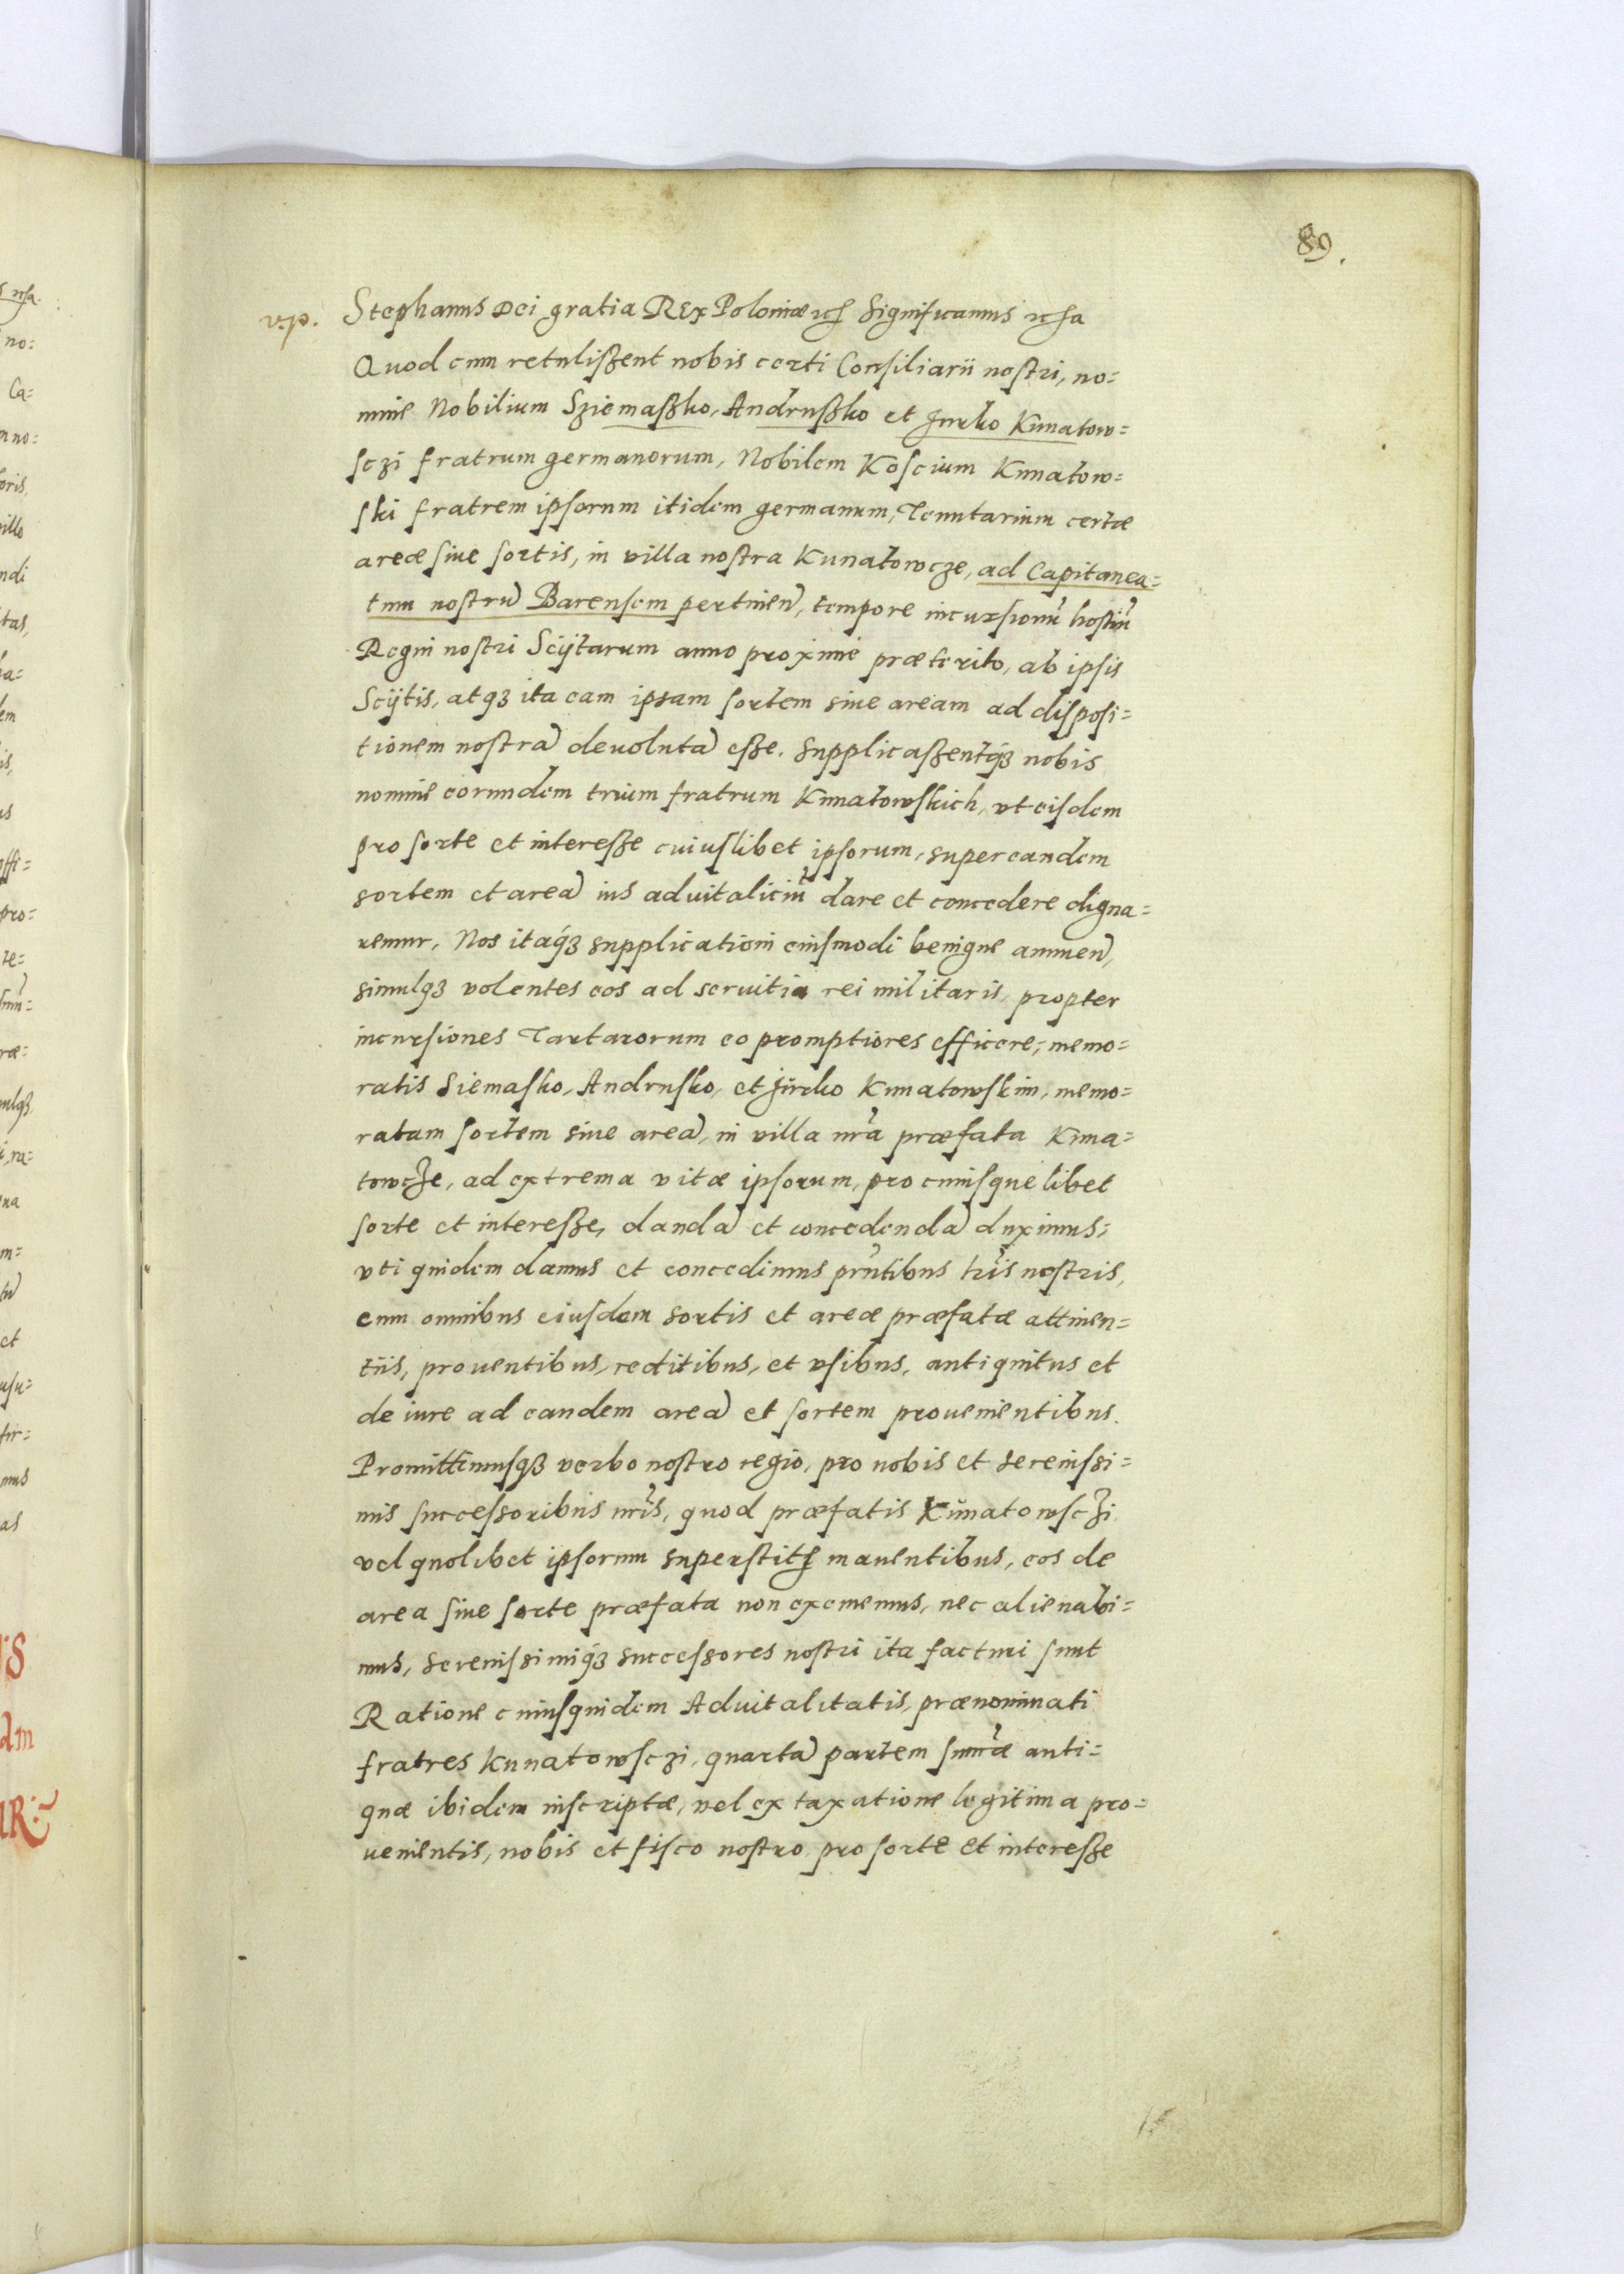 89.
v.p. Stephanus Dei gratia REx Poloniæ &c Significamus &c a
Quod cum retulißent nobis certi Consiliarii nostri, no=
mine Nobilium Sziemaßko, Andrußko et Jurko Kunatow=
sczi fratrum germanorum, Nobilem Koscium Kunatow=
ski fratrem ipsorum itidem germanum, Tenutarium certæ
areæ siue sortis, in villa nostra Kunatowcze, ad Capitanea=
tum nostrũ Barensem pertinen, tempore incursionũ hostiũ
Regni nostri Scÿtarum anno proxime præterito, ab ipsis
Scÿtis, atq3 ita eam ipsam sortem siue aream ad disposi=
tionem nostrã deuolutã eße. Supplicaßentq3 nobis
nomine eorundem trium fratrum Kunatowskich, vt eisdem
pro sorte et intereße cuiuslibet ipsorum, super eandem
sortem et areã ius aduitaliciũ dare et concedere digna=
remur, Nos itaq3 supplicationi eiusmodi benigne annuen,
simulq3 volentes eos ad seruitia rei militaris, propter
incursiones Tartarorum eo promptiores efficere, memo=
ratis Siemasko, Andrusko, et Jurko Kunatowskim, memo=
ratam sortem siue areã, in villa nrã præfata Kuna=
towcze, ad extrema vitæ ipsorum, pro cuiusque libet
sorte et intereße, dandã et concedendã duximus,
vti quidem damus et concedimus prñtibus lr̃is nostris,
cum omnibus eiusdem sortis et areæ præfatæ attinen=
tiis, prouentibus, reditibus, et vsibus, antiquitus et
de iure ad eandem areã et sortem prouenientibus.
Promittimusq3 verbo nostro regio, pro nobis et serenissi=
mis successoribus nr̃is, quod præfatis Kunatowsczi
vel quolibet ipsorum superstite manentibus, eos de
area siue sorte præfata non eximemus, nec alienabi=
mus, serenissimiq3 successores nostri ita facturi sunt
Ratione cuiusquidem Aduitalitatis, prænominati
fratres Kunatowsczi, quartã partem sum̃æ anti=
quæ ibidem inscriptæ, vel ex taxatione legitima pro=
uenientis, nobis et fisco nostro pro sorte et intereße